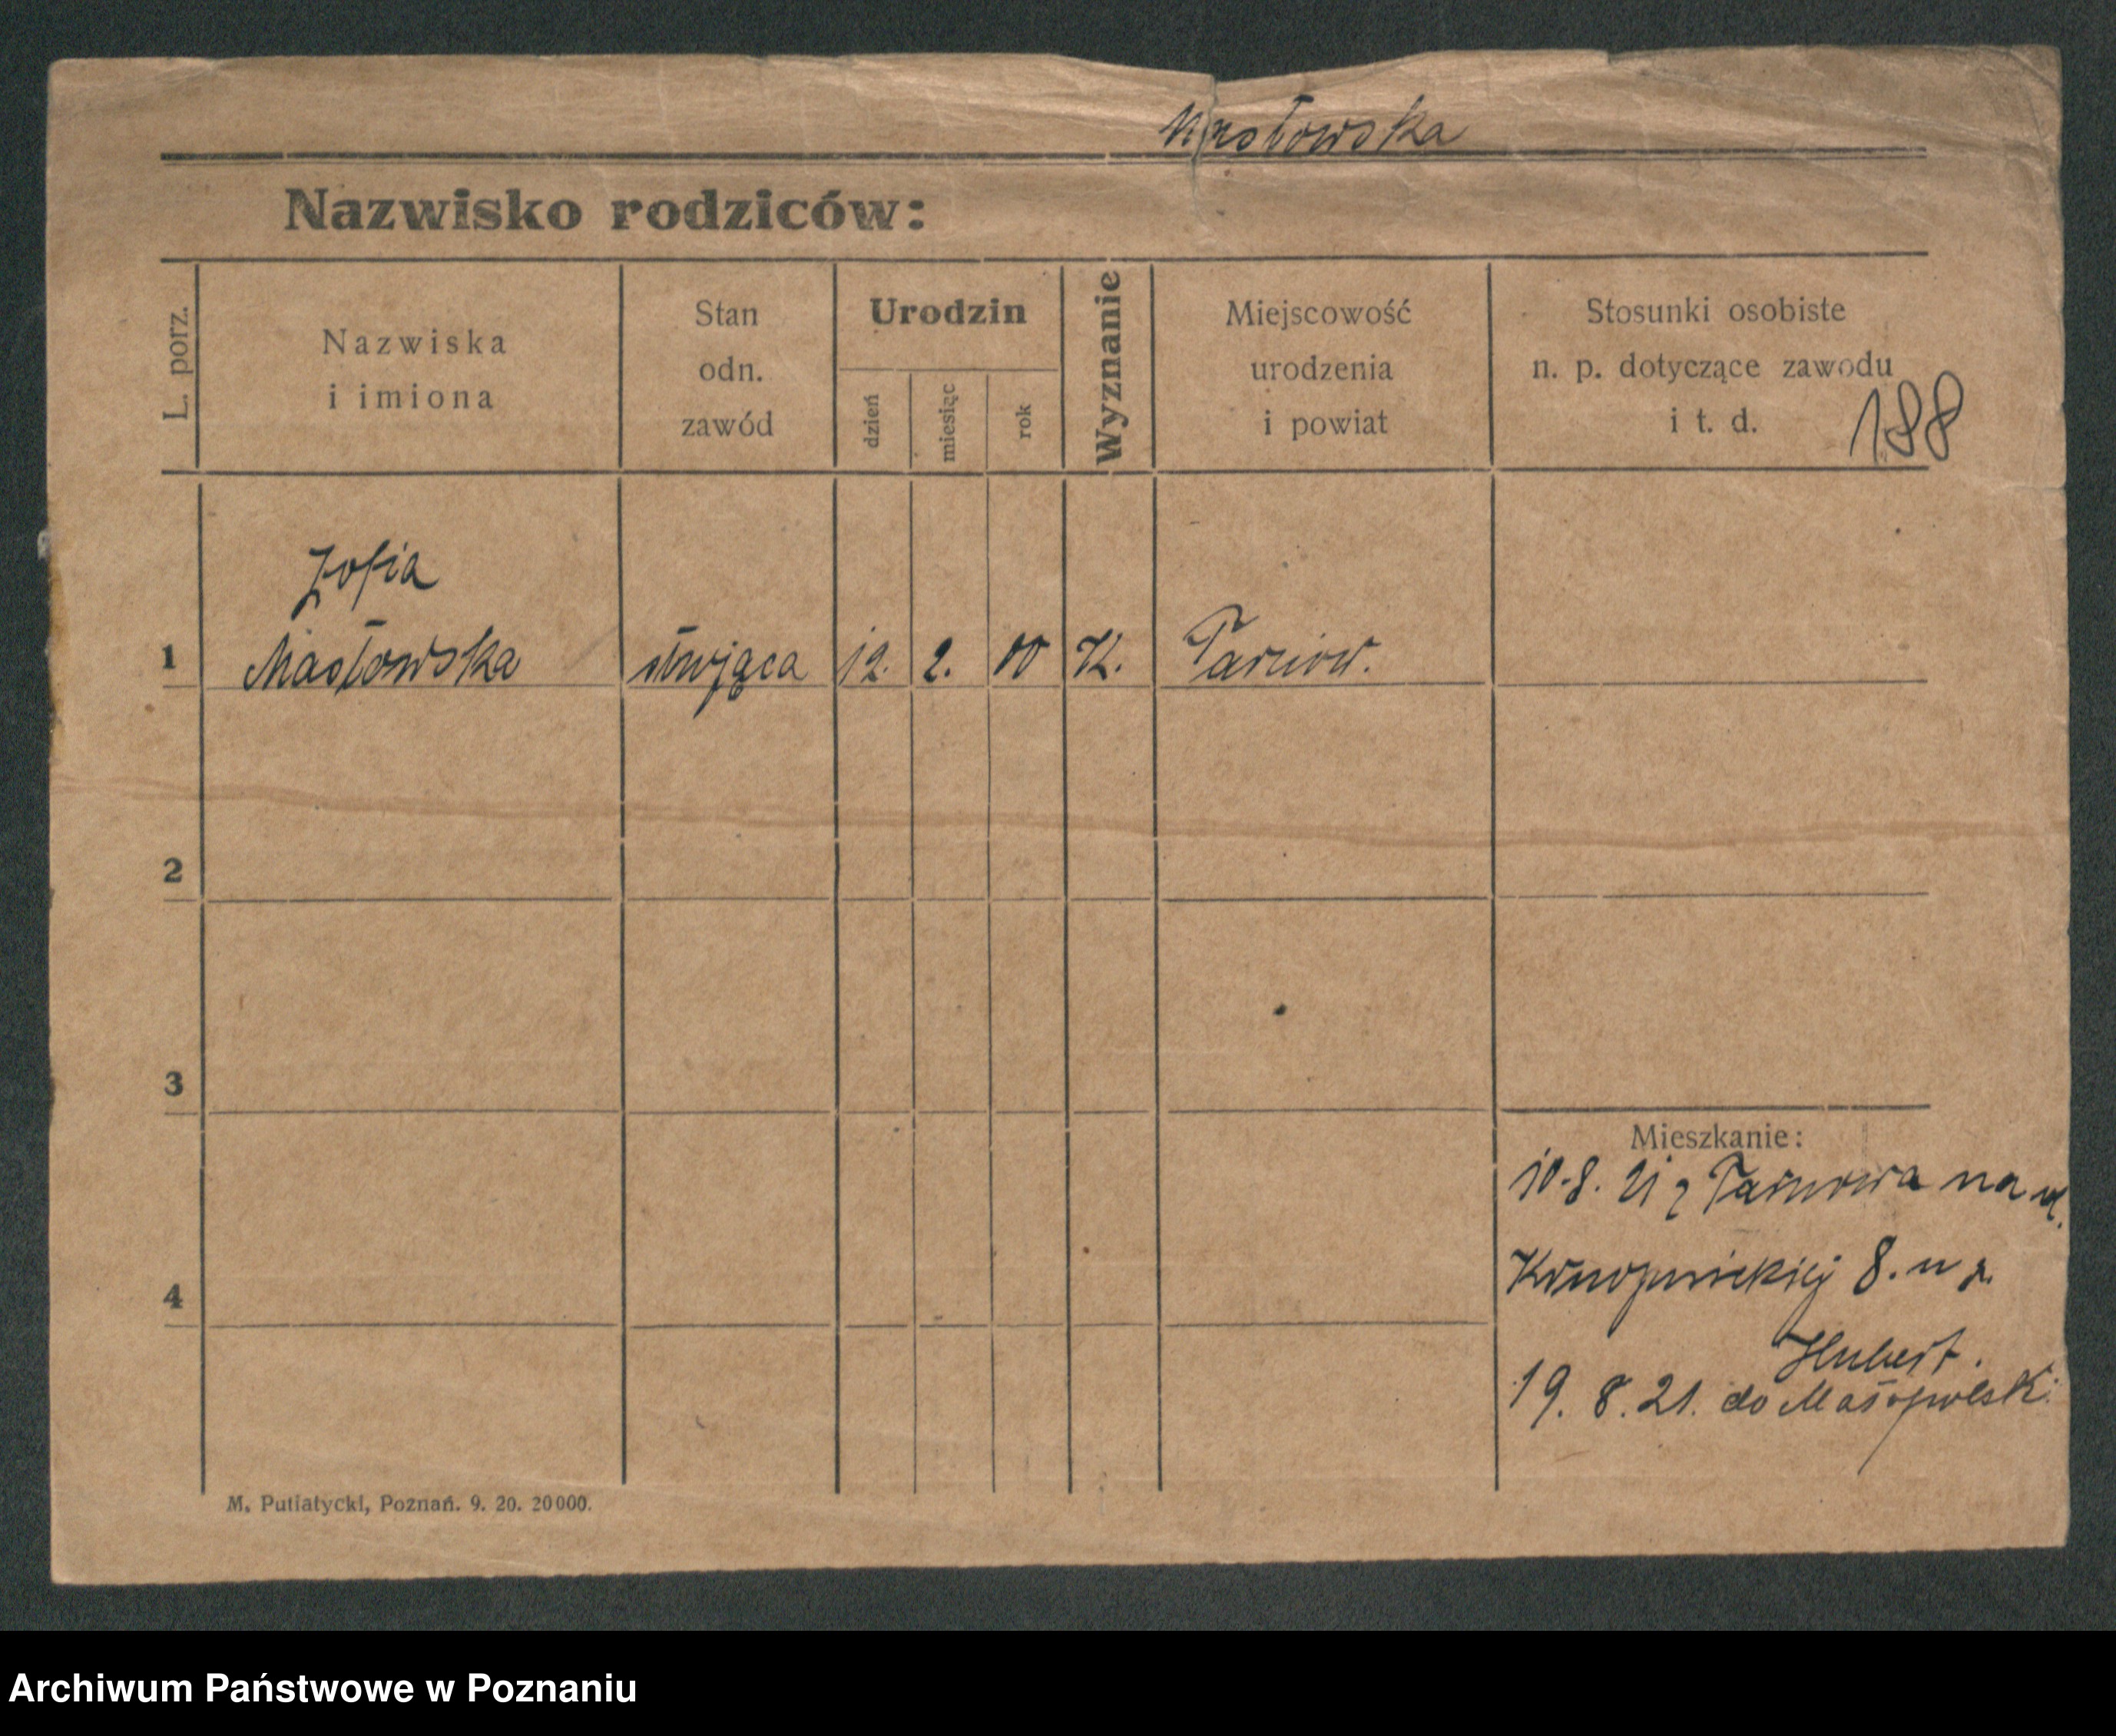 Masłowska
Nazwisko rodziców:
L. porz.
Nazwiska
i imiona
Stan
odn.
zawód
Urodzin
dzień
miesiąc
rok
Wyznanie
Miejscowość
urodzenia
i powiat
Stosunki osobiste
n. p. dotyczące zawodu
i t. d.
188
Zofia
1 Masłowska służąca 12. 2. 00 K. Tarnow.
2
3
4
Mieszkanie:
10.8. 21 z Tarnowa na ul.
Konopnickiej 8. u p.
Hubert.
19. 8. 21. do Małopolski
M. Putiatycki, Poznań. 9. 20. 20000.
Archiwum Państwowe w Poznaniu